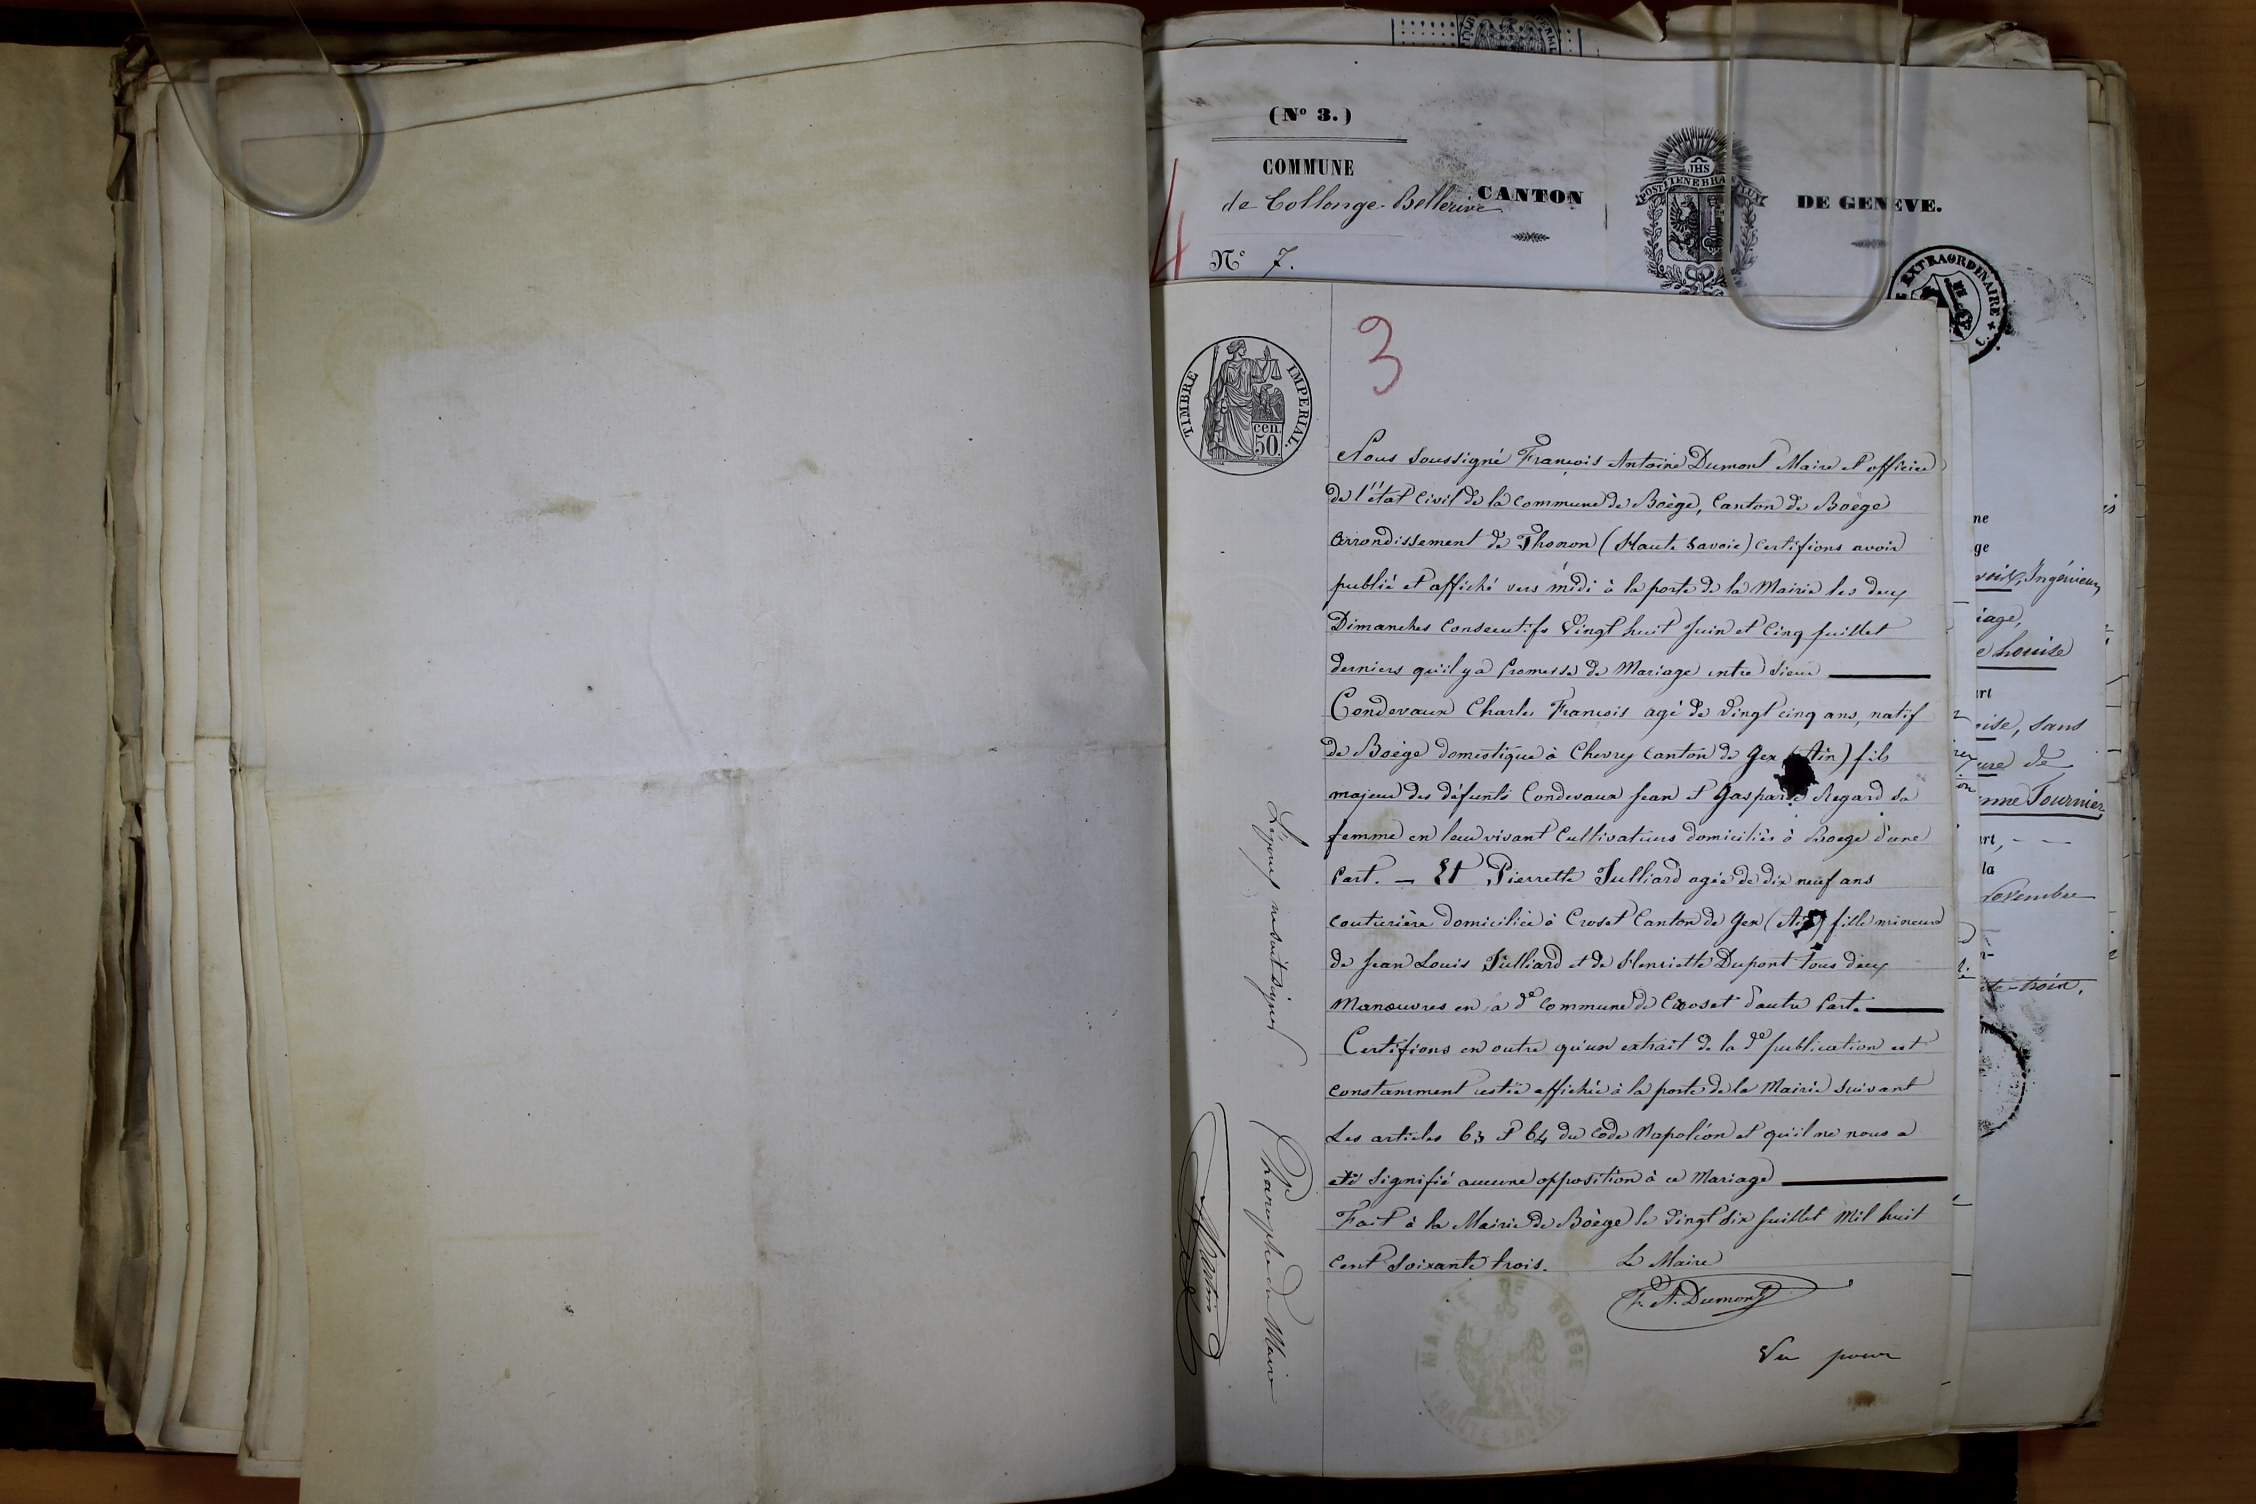 (No 3.)
COMMUNE
de Collonge-Bellerive
CANTON
DE GENÈVE.
POST TENEBRAS LUX
JHS
No 7.
4
EXTRAORDINAIRE
3
TIMBRE IMPERIAL.
cen.
50.
Nous Soussigné François Antoine Dumont Maire et officier
de l'état Civil de la Commune de Boège, Canton de Boège
arrondissement de Thonon (Haute Savoie) Certifions avoir
publié et affiché vers midi à la porte de la Mairie les deux
Dimanches Consecutifs Vingt huit Juin et Cinq Juillet
derniers qu'il y a Promesse de Mariage entre Sieur
Condevaux Charles François agé de Vingt cinq ans, natif
de Boège domestique à Chevry Canton de Gex (Ain) fils
majeur des défunts Condevaux Jean et Gasparde Regard sa
femme en leur vivant Cultivateurs domiciliés à Boege d'une
Part. — Et Pierrette Julliard agée de dix neuf ans
couturière domiciliée à Croset Canton de Gex (Ain) fille mineure
de Jean Louis Julliard et de Henriette Dupont tous deux
Manœuvres en la de Commune de Croset d'autre Part.
Certifions en outre qu'un extrait de la de publication est
constamment restée affichée à la porte de la Mairie Suivant
Les articles 63 et 64 du Code Napoléon et qu'il ne nous a
été Signifié aucune opposition à ce Mariage
Fait à la Mairie de Boège le Vingt Six Juillet Mil huit
Cent Soixante trois. Le Maire
F. A. Dumont
MAIRIE DE BOÈGE
HAUTE SAVOIE
Vu pour
Paraphe du Maire
ne
ge
Ingénieur
iage,
e Louise
art
oise, sans
ure de
enne Tournier
art,
la
Novembre
te-trois.